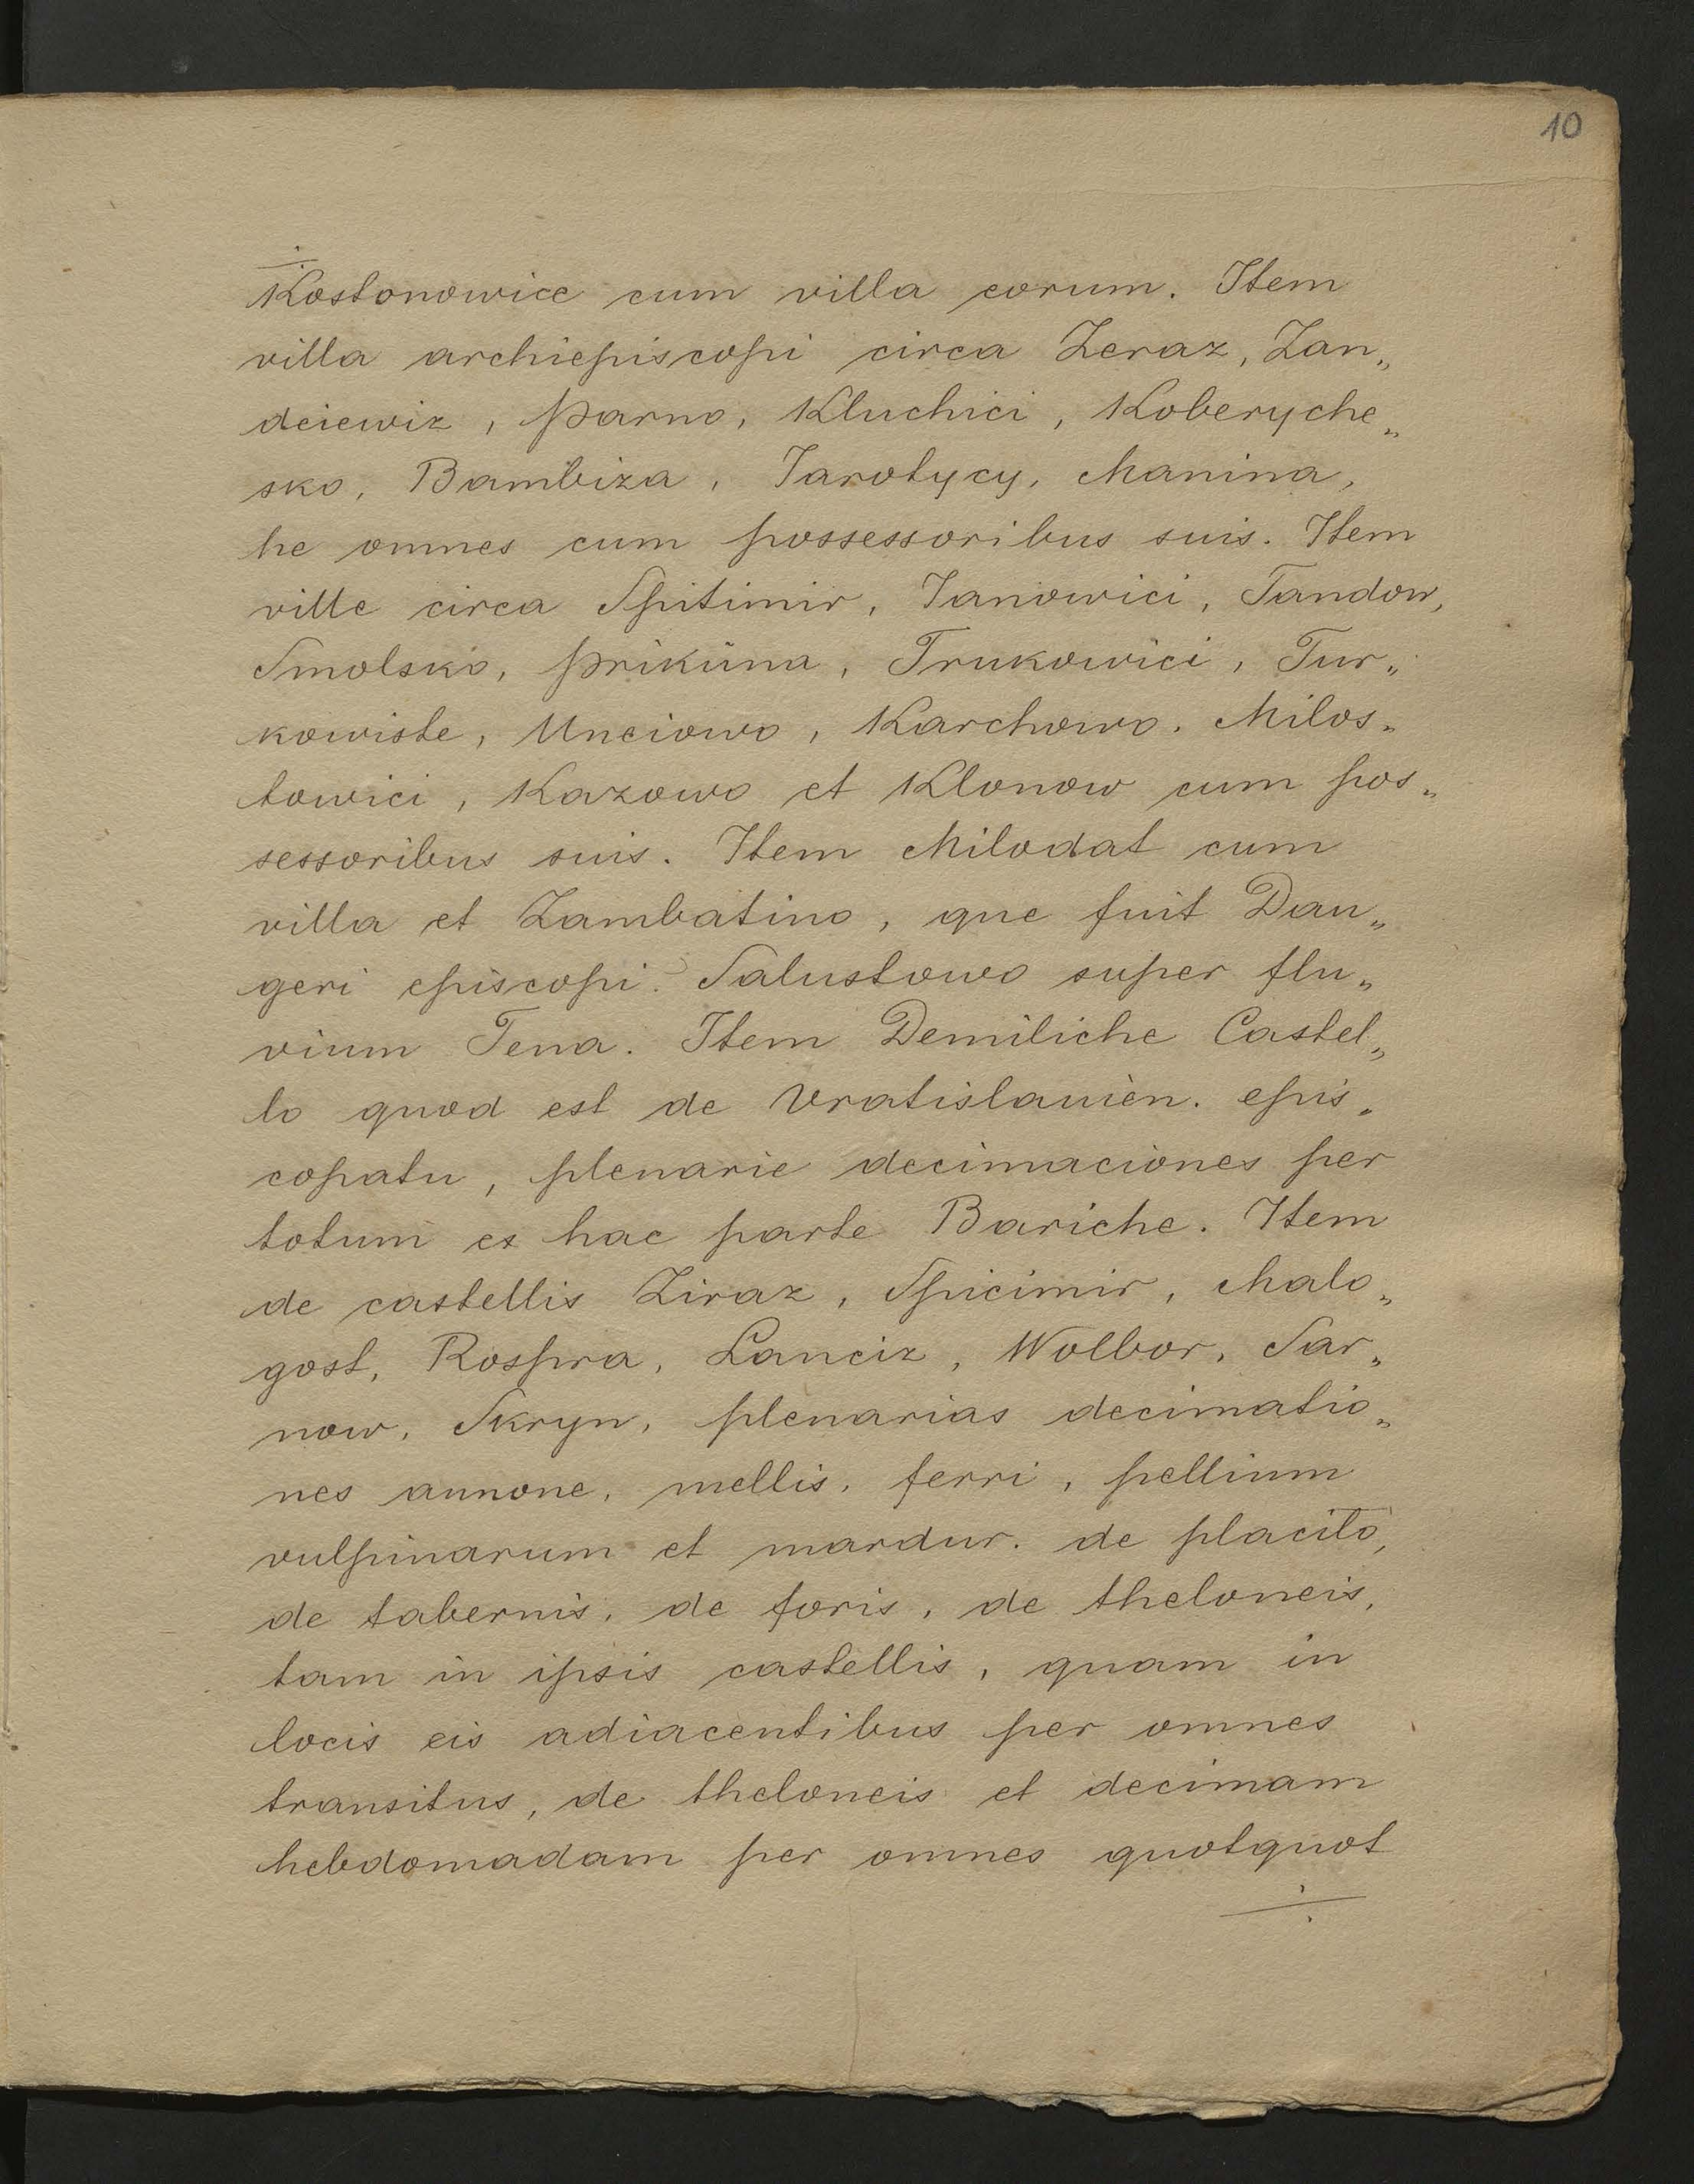 10
Kostonowice cum villa eorum. Item
villa archiepiscopi circa Zeraz, Zan„
deiewiz, Parno, Kluchici, Koberyche„
sko, Bambiza, Jarotycy, Manina,
he omnes cum possessoribus suis. Item
ville circa Spitimir, Janowici, Tandow,
Smolsko, Prikuna, Trukowici, Tur„
kowiste, Unciowo, Karchowo. Milos„
towici, Kazowo et Klonow cum pos„
sessoribus suis. Item Milodat cum
villa et Zambatino, que fuit Dan„
geri episcopi. Salustowo super flu„
vium Tena. Item Demiliche Castel„
lo quod est de Vratislauien. epis„
copatu, plenarie decimaciones per
totum es hac parte Bariche. Item
de castellis Ziraz, Spicimir, Malo„
gost, Rospra, Lanciz, Wolbor, Sar„
now, Skryn, plenarias decimatio„
nes annone, mellis, ferri, pellium
vulpinarum et mardur. de placito,
de tabernis, de foris, de theloneis,
tam in ipsis castellis, quam in
locis eis adiacentibus per omnes
transitus, de theloneis et decimam
hebdomadam per omnes quotquot